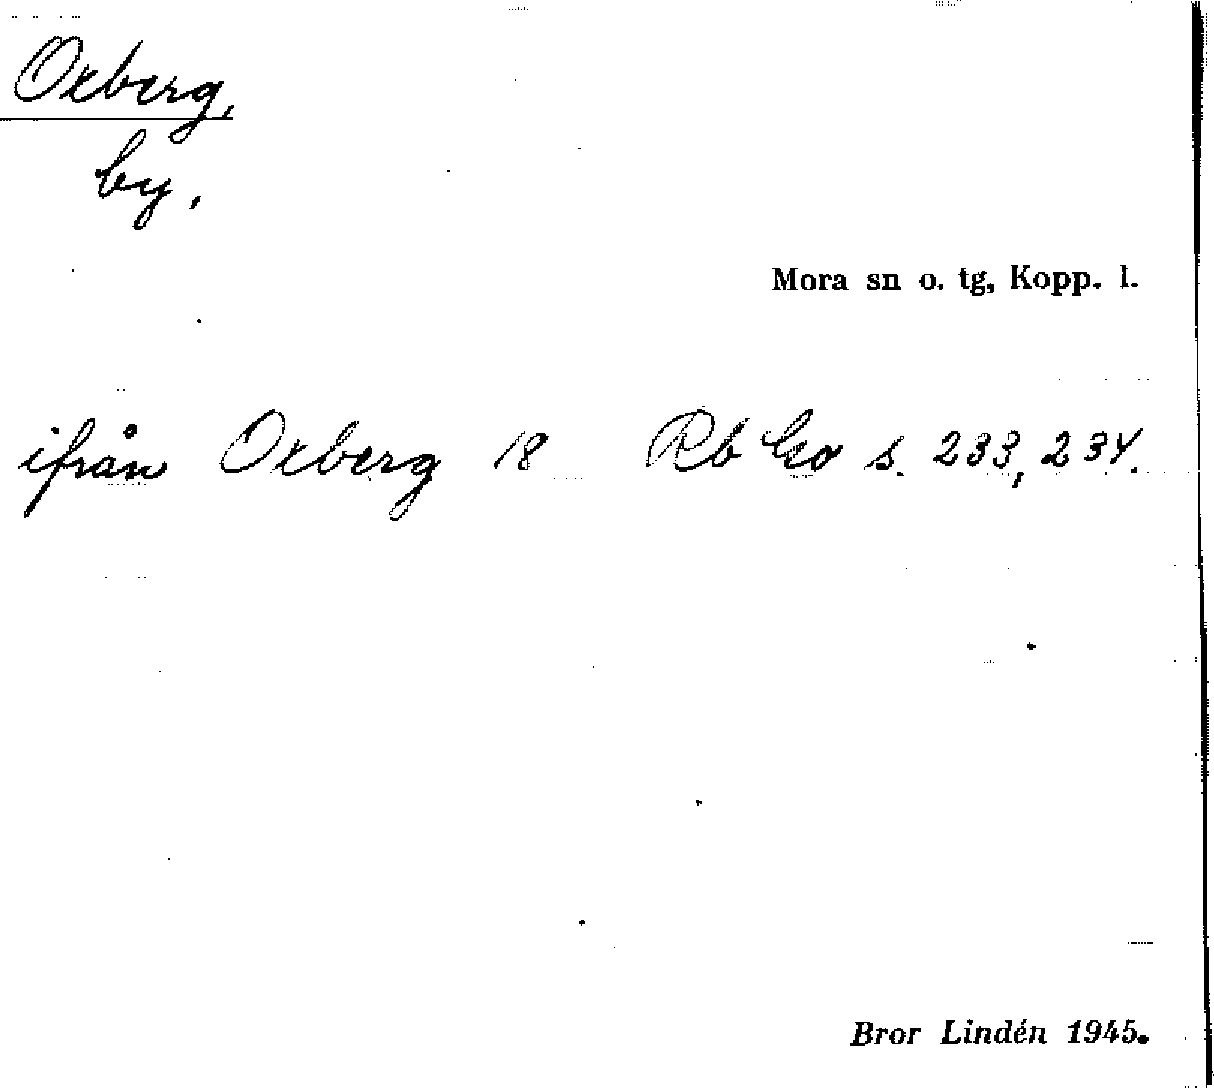 Oxberg,
by.
Mora sn o. tg, Kopp. l.
ifrån Oxberg 18 Rb s. 233, 234.
Bror Lindén 1945.